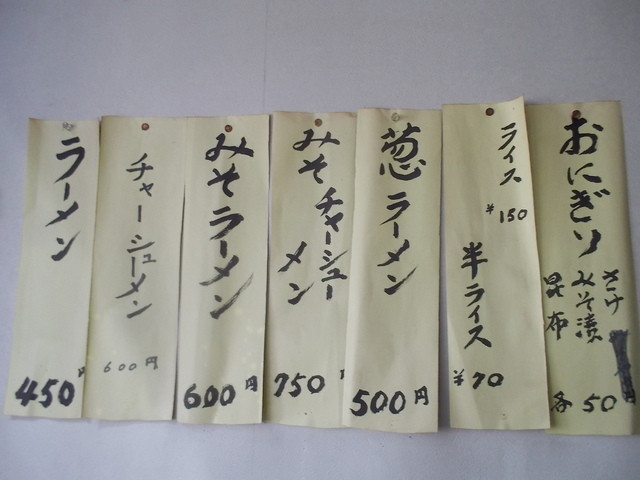 おにぎり
さけ
みそ漬
昆布
各50円
ライス
¥150
半ライス
¥70
葱ラーメン
500円
みそチャーシュー
メン
750円
みそラーメン
600円
チャーシューメン
600円
ラーメン
450円